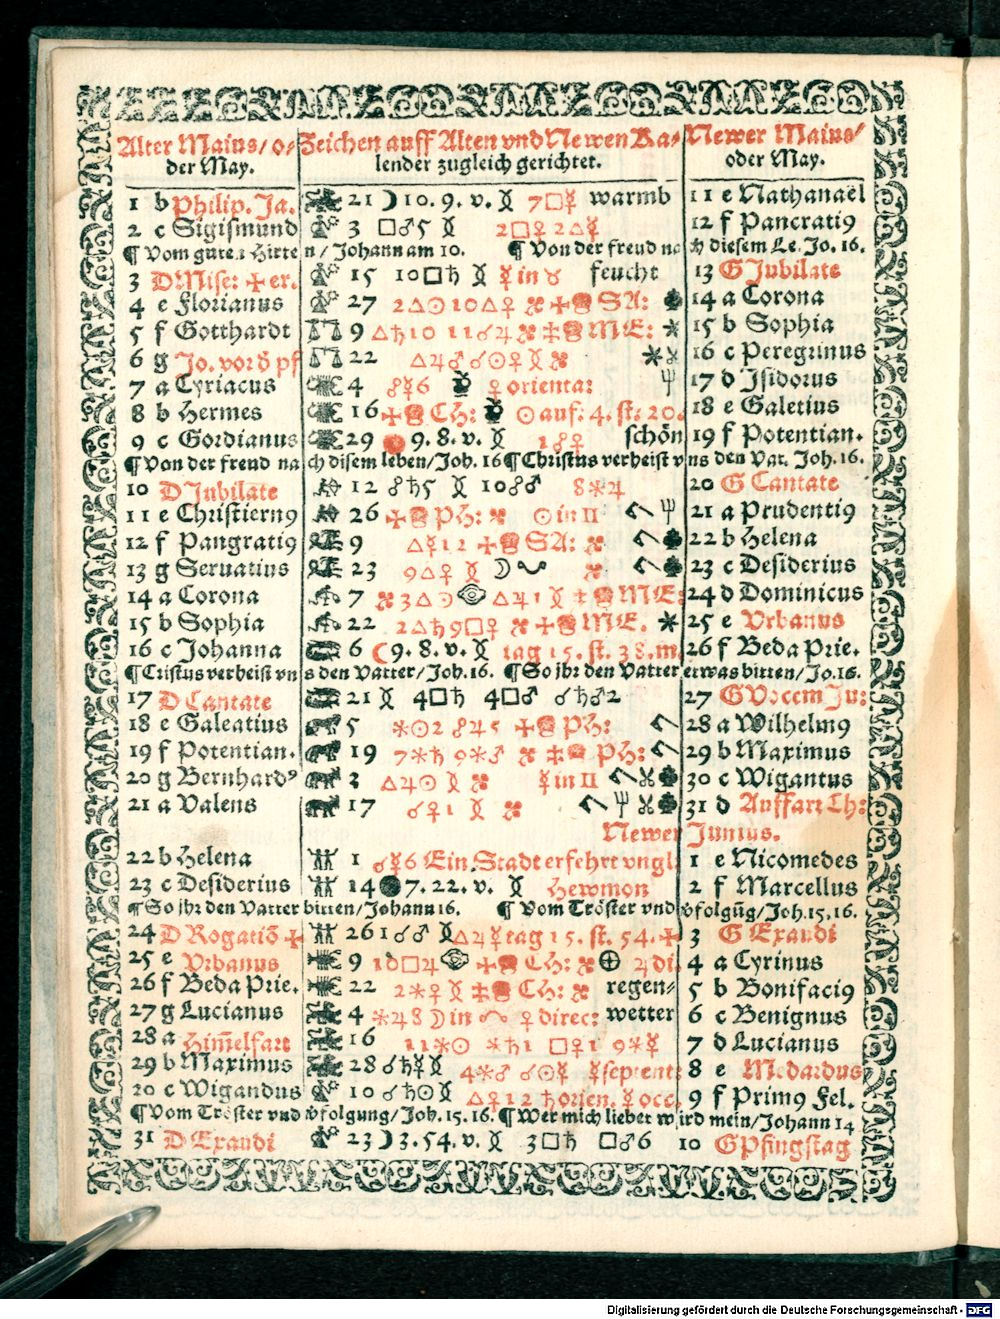 Alter Maius/ o- Zeichen auff Alten vnd Newen Ka- Newer Maius/
der May. lender zugleich gerichtet. oder May.
1 b Philip. Ja. 21 ☽ 10. 9. v. 7 □ ☿ warmb 11 e Nathanaël
2 c Sigismund 3 □ ♂ 5 2 □ ♀ 2 △ ☿ 12 f Pancrati9
¶ Vom gute. Hirten/ Johann am 10. ¶ Von der freud nach diesem Le. Jo. 16.
3 D Mise: ✠ er. 15 10 □ ♄ ☿ in ♉ feucht 13 G Jubilate
4 e Florianus 27 2 △ ☉ 10 △ ♀ ✠ SA: 14 a Corona
5 f Gotthardt 9 △ ♄ 10 11 ☌ ♃ ME: 15 b Sophia
6 g Jo. vor d pf 22 △ ♃ ♂ ☌ ☉ ♀ 16 c Peregrinus
7 a Cyriacus 4 ☍ ☿ 6 ♀ orienta: 17 d Isidorus
8 b Hermes 16 ✠ CH: ☉ auf. 4. st. 20. 18 e Galetius
9 c Gordianus 29 9. 8. v. 1 ☍ ♀ schön 19 f Potentian.
¶ Von der freud nach disem leben/ Joh. 16 ¶ Christus verheist vns den Vat. Joh. 16.
10 D Jubilate 12 ☍ ♄ 5 10 ☍ ♂ 8 ⚹ ♃ 20 G Cantate
11 e Christiern9 26 ✠ PH: ☉ in II 21 a Prudenti9
12 f Pangrati9 9 △ ☿ 12 ✠ SA: 22 b Helena
13 g Seruatius 23 9 △ ♀ 23 c Desiderius
14 a Corona 7 3 △ ☉ △ ♃ 1 ME: 24 d Dominicus
15 b Sophia 22 2 △ ♄ 9 □ ♀ ✠ ME. 25 e Vrbanus
16 c Johanna 6 ☾ 9. 8. v. tag 15. st. 38. m. 26 f Beda Prie.
¶ Cristus verheist vns den Vatter/ Joh. 16. ¶ So jhr den Vatter etwas bitten/ Jo. 16.
17 D Cantate 21 4 □ ♄ 4 □ ♂ ☌ ♄ ♂ 2 27 G Vocem Ju:
18 e Galeatius 5 ⚹ ☉ 2 ☍ ♃ 5 ✠ PH: 28 a Wilhelm9
19 f Potentian. 19 7 ⚹ ♄ 9 ⚹ ♂ PH: 29 b Maximus
20 g Bernhard9 3 △ ♃ ☉ ☿ in II 30 c Wigantus
21 a Valens 17 ☌ ♀ 1 31 d Auffart Ch:
Newer Junius.
22 b Helena 1 ☌ ☿ 6 Ein Stadt erfehrt vngl: 1 e Nicomedes
23 c Desiderius 14 7. 22. v. Hewmon 2 f Marcellus
¶ So jhr den Vatter bitten/ Johann 16. ¶ Vom Tröster vnd vfolgũg/ Joh. 15. 16.
24 D Rogatiõ ✠ 26 1 ☌ ♂ △ ♃ ☿ tag 15. st. 54. ✠ 3 G Exaudi
25 e Vrbanus 9 10 □ ♃ ✠ CH: ♃ di. 4 a Cyrinus
26 f Beda Prie. 22 2 ⚹ ♀ CH: regen= 5 b Bonifaci9
27 g Lucianus 4 ⚹ ♃ 8 ☽ in ♀ direc: wetter 6 c Benignus
28 a Him̃elfart 16 11 ⚹ ☉ ⚹ ♄ 1 □ ♀ 1 9 ⚹ ☿ 7 d Lucianus
29 b Maximus 28 ☌ ♄ ☿ 4 ⚹ ♂ ☌ ☉ ☿ ☿ septent: 8 e Medardus
20 c Wigandus 10 ☌ ♄ ☉ △ ♀ 12 ♄ orien. ☿ occ. 9 f Prim9 Fel.
¶ Vom Tröster vnd vfolgung/ Joh. 15. 16. ¶ Wer mich liebet wird mein/ Johann 14
31 D Exaudi 23 ☽ 3. 54. v. 3 □ ♄ □ ♂ 6 10 G Pfingstag
Digitalisierung gefördert durch die Deutsche Forschungsgemeinschaft - DFG